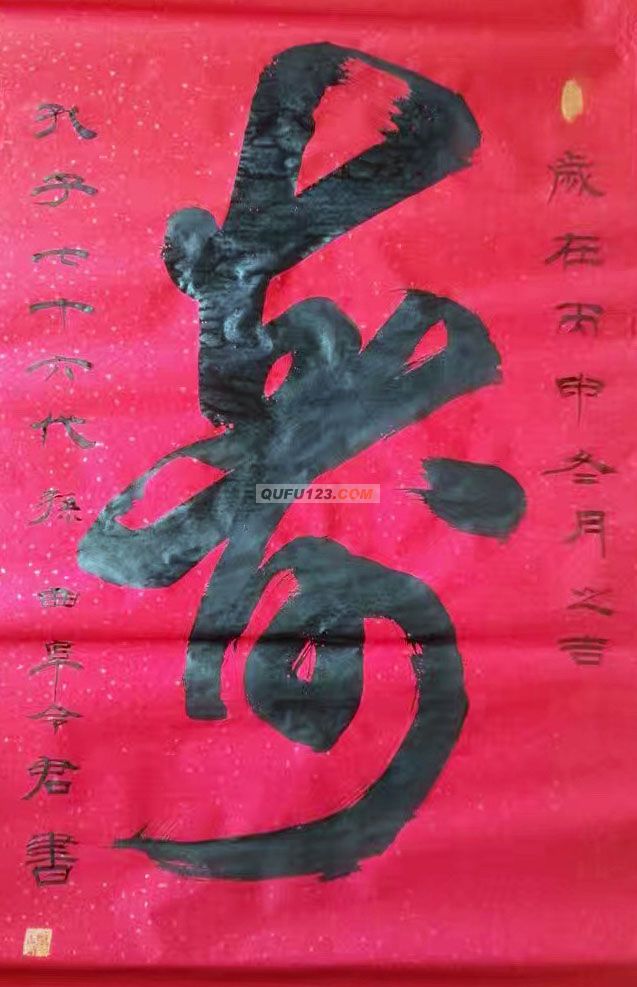 歲在丙申冬月之吉
壽
孔子七十六代孫曲阜令君書
QUFU123.COM